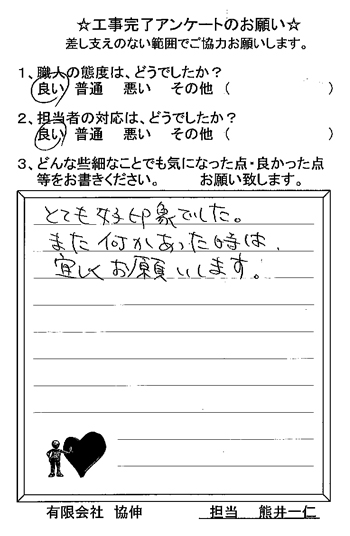 ☆工事完了アンケートのお願い☆
差し支えのない範囲でご協力お願いします。
1、職人の態度は、どうでしたか？
良い 普通 悪い その他（ ）
2、担当者の対応は、どうでしたか？
良い 普通 悪い その他（ ）
3、どんな些細なことでも気になった点・良かった点
等をお書きください。 お願い致します。
とても好印象でした。
また何かあった時は、
宜しくお願いします。
有限会社 協伸 担当 熊井一仁